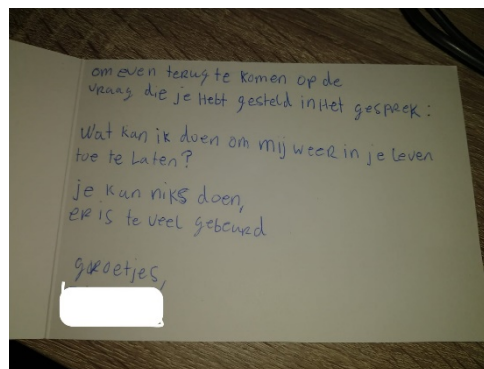 om even terug te komen op de
vraag die je Hebt gesteld in Het gesprek:
Wat kan ik doen om mij weer in je leven
toe te Laten?
je kan niks doen,
er is te veel gebeurd
groetjes,